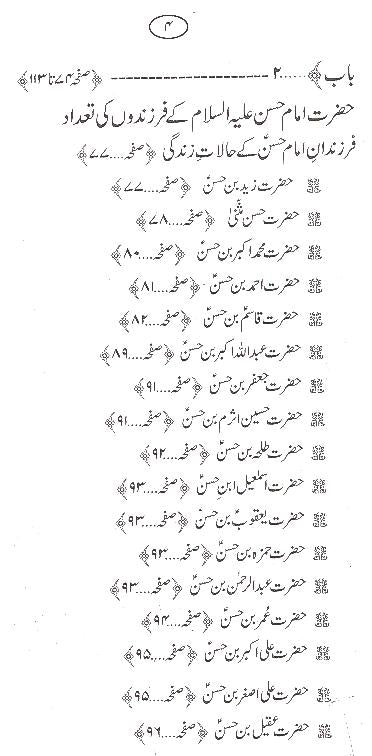 ۴
باب﴾......۲ ---------------------- ﴿صفحہ ۷۴ تا ۱۱۳﴾
حضرت امام حسن علیہ السلام کے فرزندوں کی تعداد
فرزندانِ امام حسنؑ کے حالاتِ زندگی ﴿صفحہ....۷۷﴾
حضرت زید بن حسنؑ ﴿صفحہ....۷۷﴾
حضرت حسن مثنّیٰ ﴿صفحہ....۷۸﴾
حضرت محمد اکبر بن حسنؑ ﴿صفحہ....۸۰﴾
حضرت احمد بن حسنؑ ﴿صفحہ....۸۱﴾
حضرت قاسمؑ بن حسنؑ ﴿صفحہ....۸۲﴾
حضرت عبداللہ اکبر بن حسنؑ ﴿صفحہ....۸۹﴾
حضرت جعفر بن حسنؑ ﴿صفحہ....۹۱﴾
حضرت حسین اثرم بن حسنؑ ﴿صفحہ....۹۱﴾
حضرت طلحہ بن حسنؑ ﴿صفحہ....۹۲﴾
حضرت اسمٰعیل ابنِ حسنؑ ﴿صفحہ....۹۳﴾
حضرت یعقوبؑ بن حسنؑ ﴿صفحہ....۹۳﴾
حضرت حمزہ بن حسنؑ ﴿صفحہ....۹۳﴾
حضرت عبدالرحمٰن بن حسنؑ ﴿صفحہ....۹۳﴾
حضرت عمر بن حسنؑ ﴿صفحہ....۹۴﴾
حضرت علی اکبر بن حسنؑ ﴿صفحہ....۹۵﴾
حضرت علی اصغر بن حسنؑ ﴿صفحہ....۹۵﴾
حضرت عقیل بن حسنؑ ﴿صفحہ....۹۶﴾